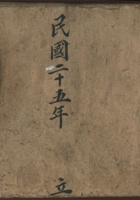 民國二十五年 立